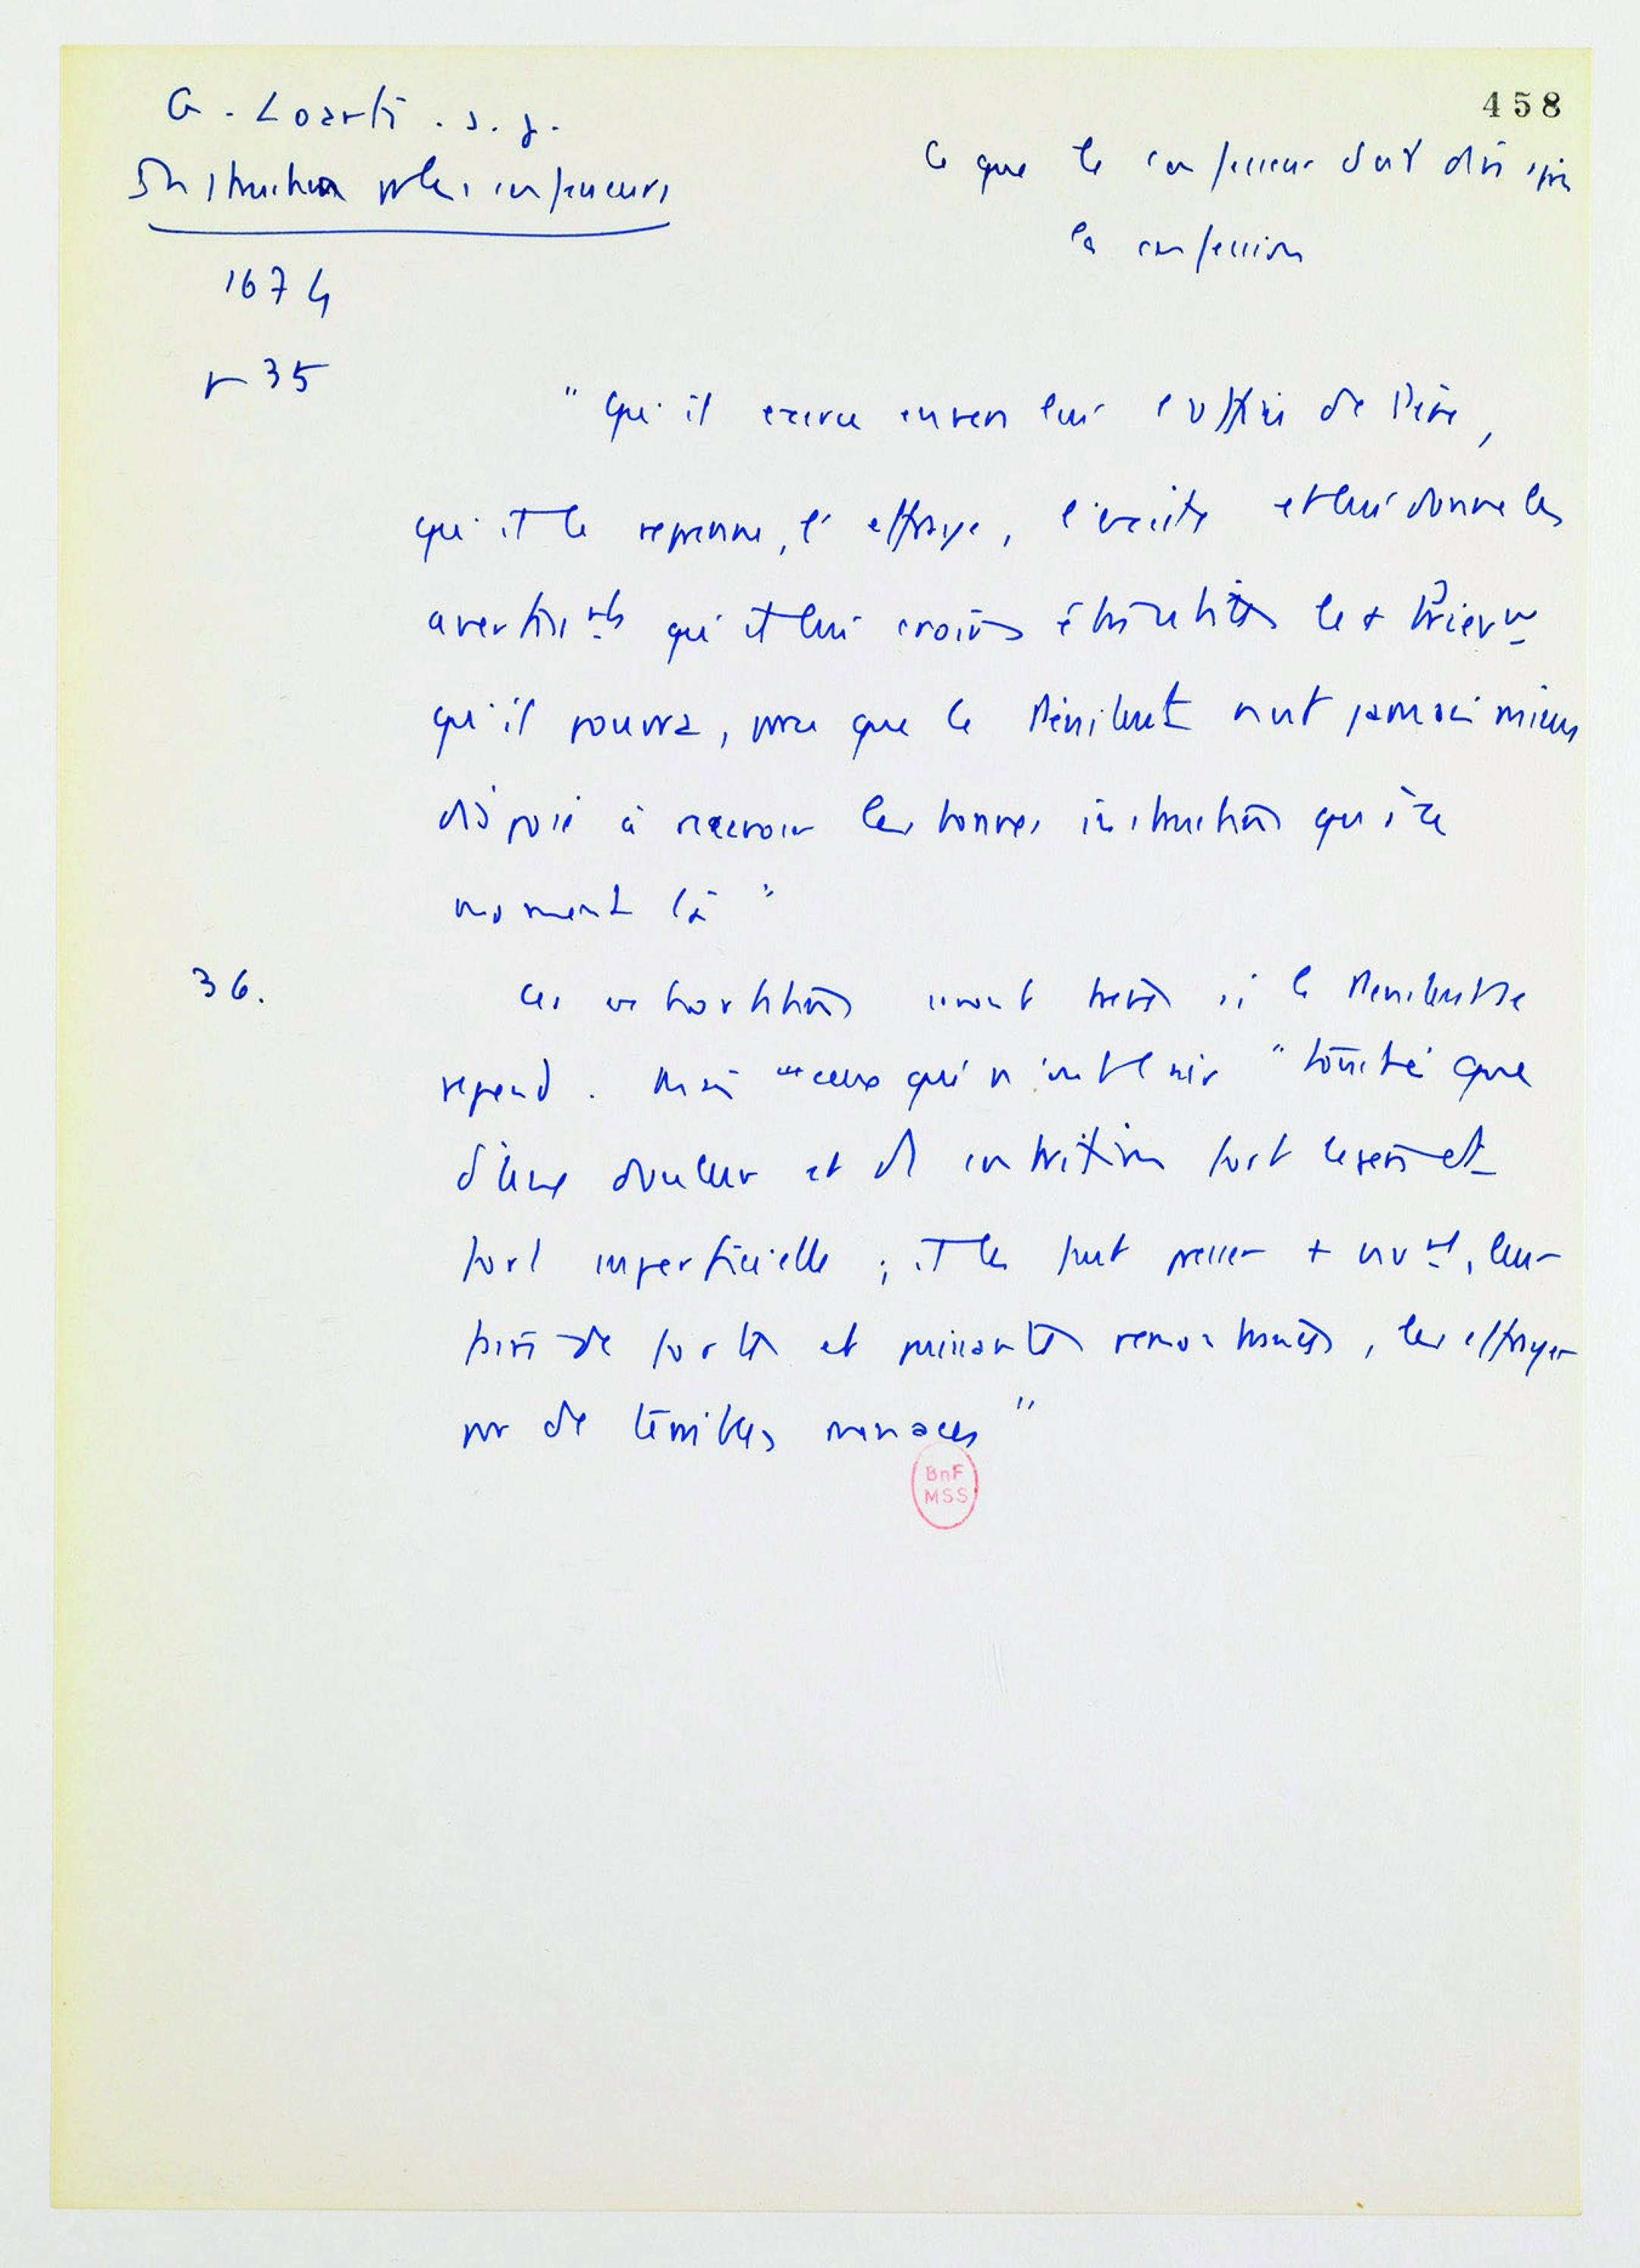 458
G. Loarte. s. j.
Instruction p les confesseurs
1674
p 35
Ce que le confesseur doit dire après
la confession
" Qu'il exerce envers lui l'office de Père,
qu'il le reprenne, l'effraye, l'excite et lui donne les
avertissmts qu'il lui croira être utiles le + brièvmt
qu'il pourra, pce que le Pénitent n'est jamais mieux
disposé à recevoir les bonnes instructions qu'à ce
moment là "
36.
Ces exhortations seront brèves si le Pénitent se
repend. Mais ceux qui n'ont le cœur " touché que
d'une douleur et d' contrition fort légère et
fort superficielle ; il les faut presser + vivmt, leur
faire de fortes et puissantes remontrances, les effrayer
par de terribles menaces "
BnF
MSS